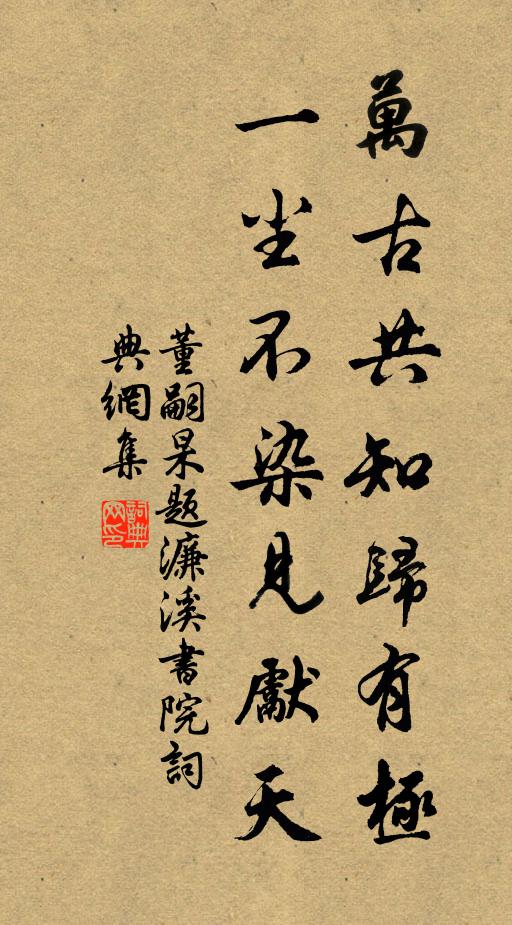 萬古共知歸有極
一尘不染見獻天
董嗣杲题濂溪書院詞
典網集
詞典
网印